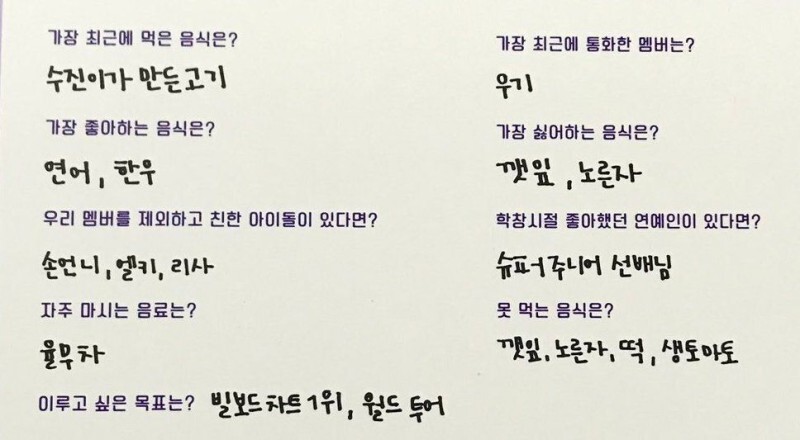 가장 최근에 먹은 음식은?
수진이가 만든고기
가장 최근에 통화한 멤버는?
우기
가장 좋아하는 음식은?
연어, 한우
가장 싫어하는 음식은?
깻잎, 노른자
우리 멤버를 제외하고 친한 아이돌이 있다면?
손언니, 엘키, 리사
학창시절 좋아했던 연예인이 있다면?
슈퍼주니어 선배님
자주 마시는 음료는?
율무차
못 먹는 음식은?
깻잎, 노른자, 떡, 생토마토
이루고 싶은 목표는? 빌보드차트 1위, 월드 투어